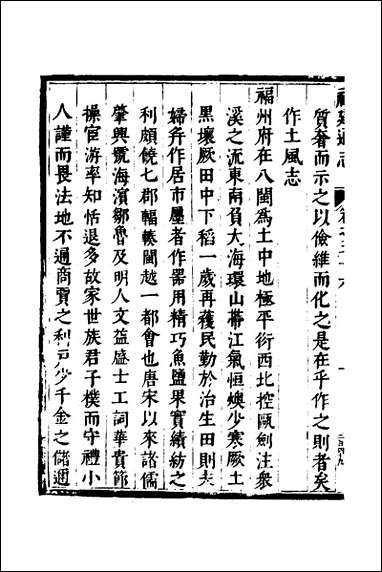 福建通志
卷之五十六
質奢而示之以儉維而化之是在乎作之則者矣
作土風志
福州府在八閩爲土中地極平衍西北控甌劍注衆
溪之流東南負大海環山帶江氣恒燠少寒厥土
黑壤厥田中下稻一歲再穫民勤於治生田則夫
婦并作居市廛者作器用精巧魚鹽果實績紡之
利頗饒七郡輻輳閩越一都會也唐宋以來諸儒
肇興號海濱鄒魯及明人文益盛士工詞華貴節
操宦游率知恬退多故家世族君子樸而守禮小
人謹而畏法地不通商賈之利亦少千金之儲邇